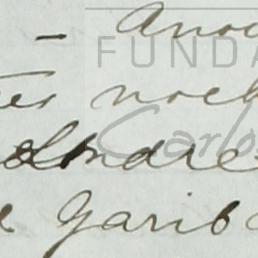 - Ano
FUNDA
tes noch
Carlos
Londre
e Garib